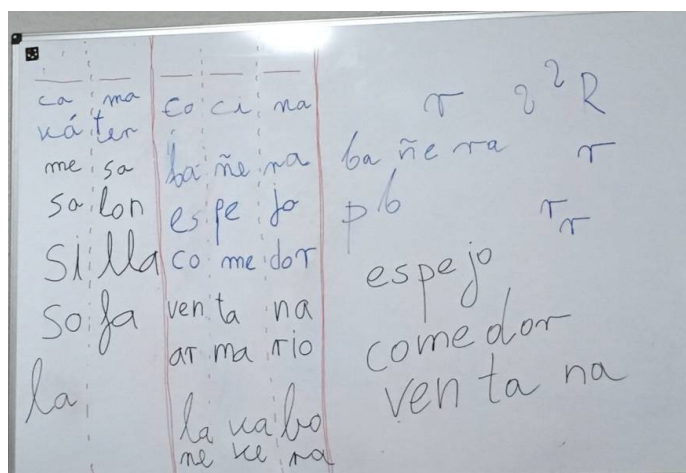 ca ma
váter
me sa
salon
silla
sofa
la
co ci na
ba ñe ra
es pe jo
co me dor
ven ta na
ar ma rio
la va bo
ne ve ra
r 2 2 R
ba ñe ra r
p b r
r
espejo
comedor
ven ta na